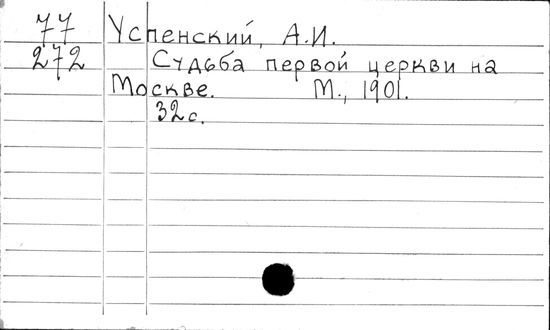 77 Успенский, А.И.
272 Судьба первой церкви на
Москве. М., 1901.
32 с.